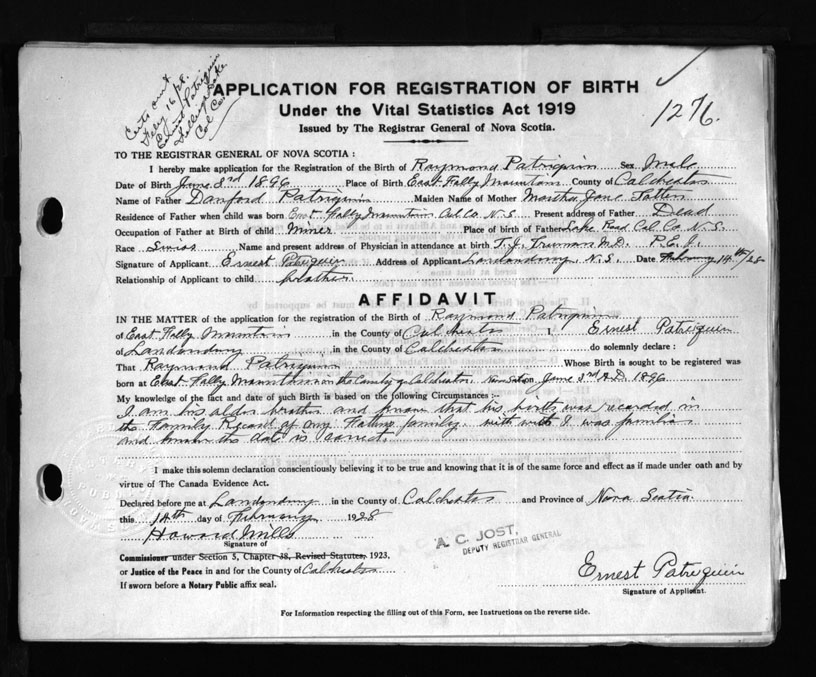 Certs out
Feby 16/28.
Ernest Patriquin
Folleigh Lake
Col Co.
APPLICATION FOR REGISTRATION OF BIRTH
Under the Vital Statistics Act 1919
1276.
Issued by The Registrar General of Nova Scotia.
TO THE REGISTRAR GENERAL OF NOVA SCOTIA :
I hereby make application for the Registration of the Birth of Raymond Patriquin Sex Male
Date of Birth June 3rd 1896 Place of Birth East Folly Mountain County of Colchester
Name of Father Danford Patriquin Maiden Name of Mother Martha Jane Totten
Residence of Father when child was born East Folly Mountain Col Co. N.S Present address of Father Dead
Occupation of Father at Birth of child Miner Place of birth of Father Lake Road Col. Co N.S.
Race Swiss Name and present address of Physician in attendance at birth T. J. Truman M.D. P.E.I.
Signature of Applicant Ernest Patriquin Address of Applicant Londonderry N.S. Date February 14th/28
Relationship of Applicant to child brother
AFFIDAVIT
IN THE MATTER of the application for the registration of the Birth of Raymond Patriquin
of East Folly Mountain in the County of Colchester I, Ernest Patriquin
of Londonderry in the County of Colchester do solemnly declare :
That Raymond Patriquin Whose Birth is sought to be registered was
born at East Folly Mountain in the County of Colchester, Nova Scotia June 3rd A.D. 1896
My knowledge of the fact and date of such Birth is based on the following Circumstances :-
I am his older brother and know that his birth was recorded in
the Family Record of my Fathers family. with I was familiar
and know the date is correct.
I make this solemn declaration conscientiously believing it to be true and knowing that it is of the same force and effect as if made under oath and by
virtue of The Canada Evidence Act.
Declared before me at Londonderry in the County of Colchester and Province of Nova Scotia
this 14th day of February 1928
Howard Mills
Signature of
A. C. JOST,
DEPUTY REGISTRAR GENERAL
Commissioner under Section 5, Chapter 38, Revised Statutes, 1923,
or Justice of the Peace in and for the County of Colchester
If sworn before a Notary Public affix seal.
Ernest Patriquin
Signature of Applicant.
For Information respecting the filling out of this Form, see Instructions on the reverse side.